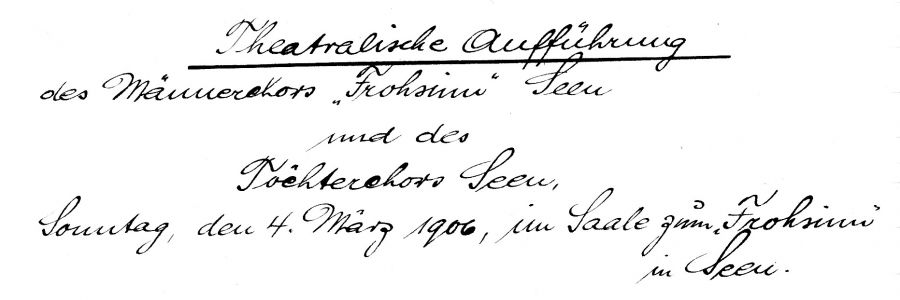 Theatralische Aufführung
des Männerchors „Frohsinn" Seen
und des
Töchterchors Seen,
Sonntag, den 4. März 1906, im Saale zum „Frohsinn"
in Seen.